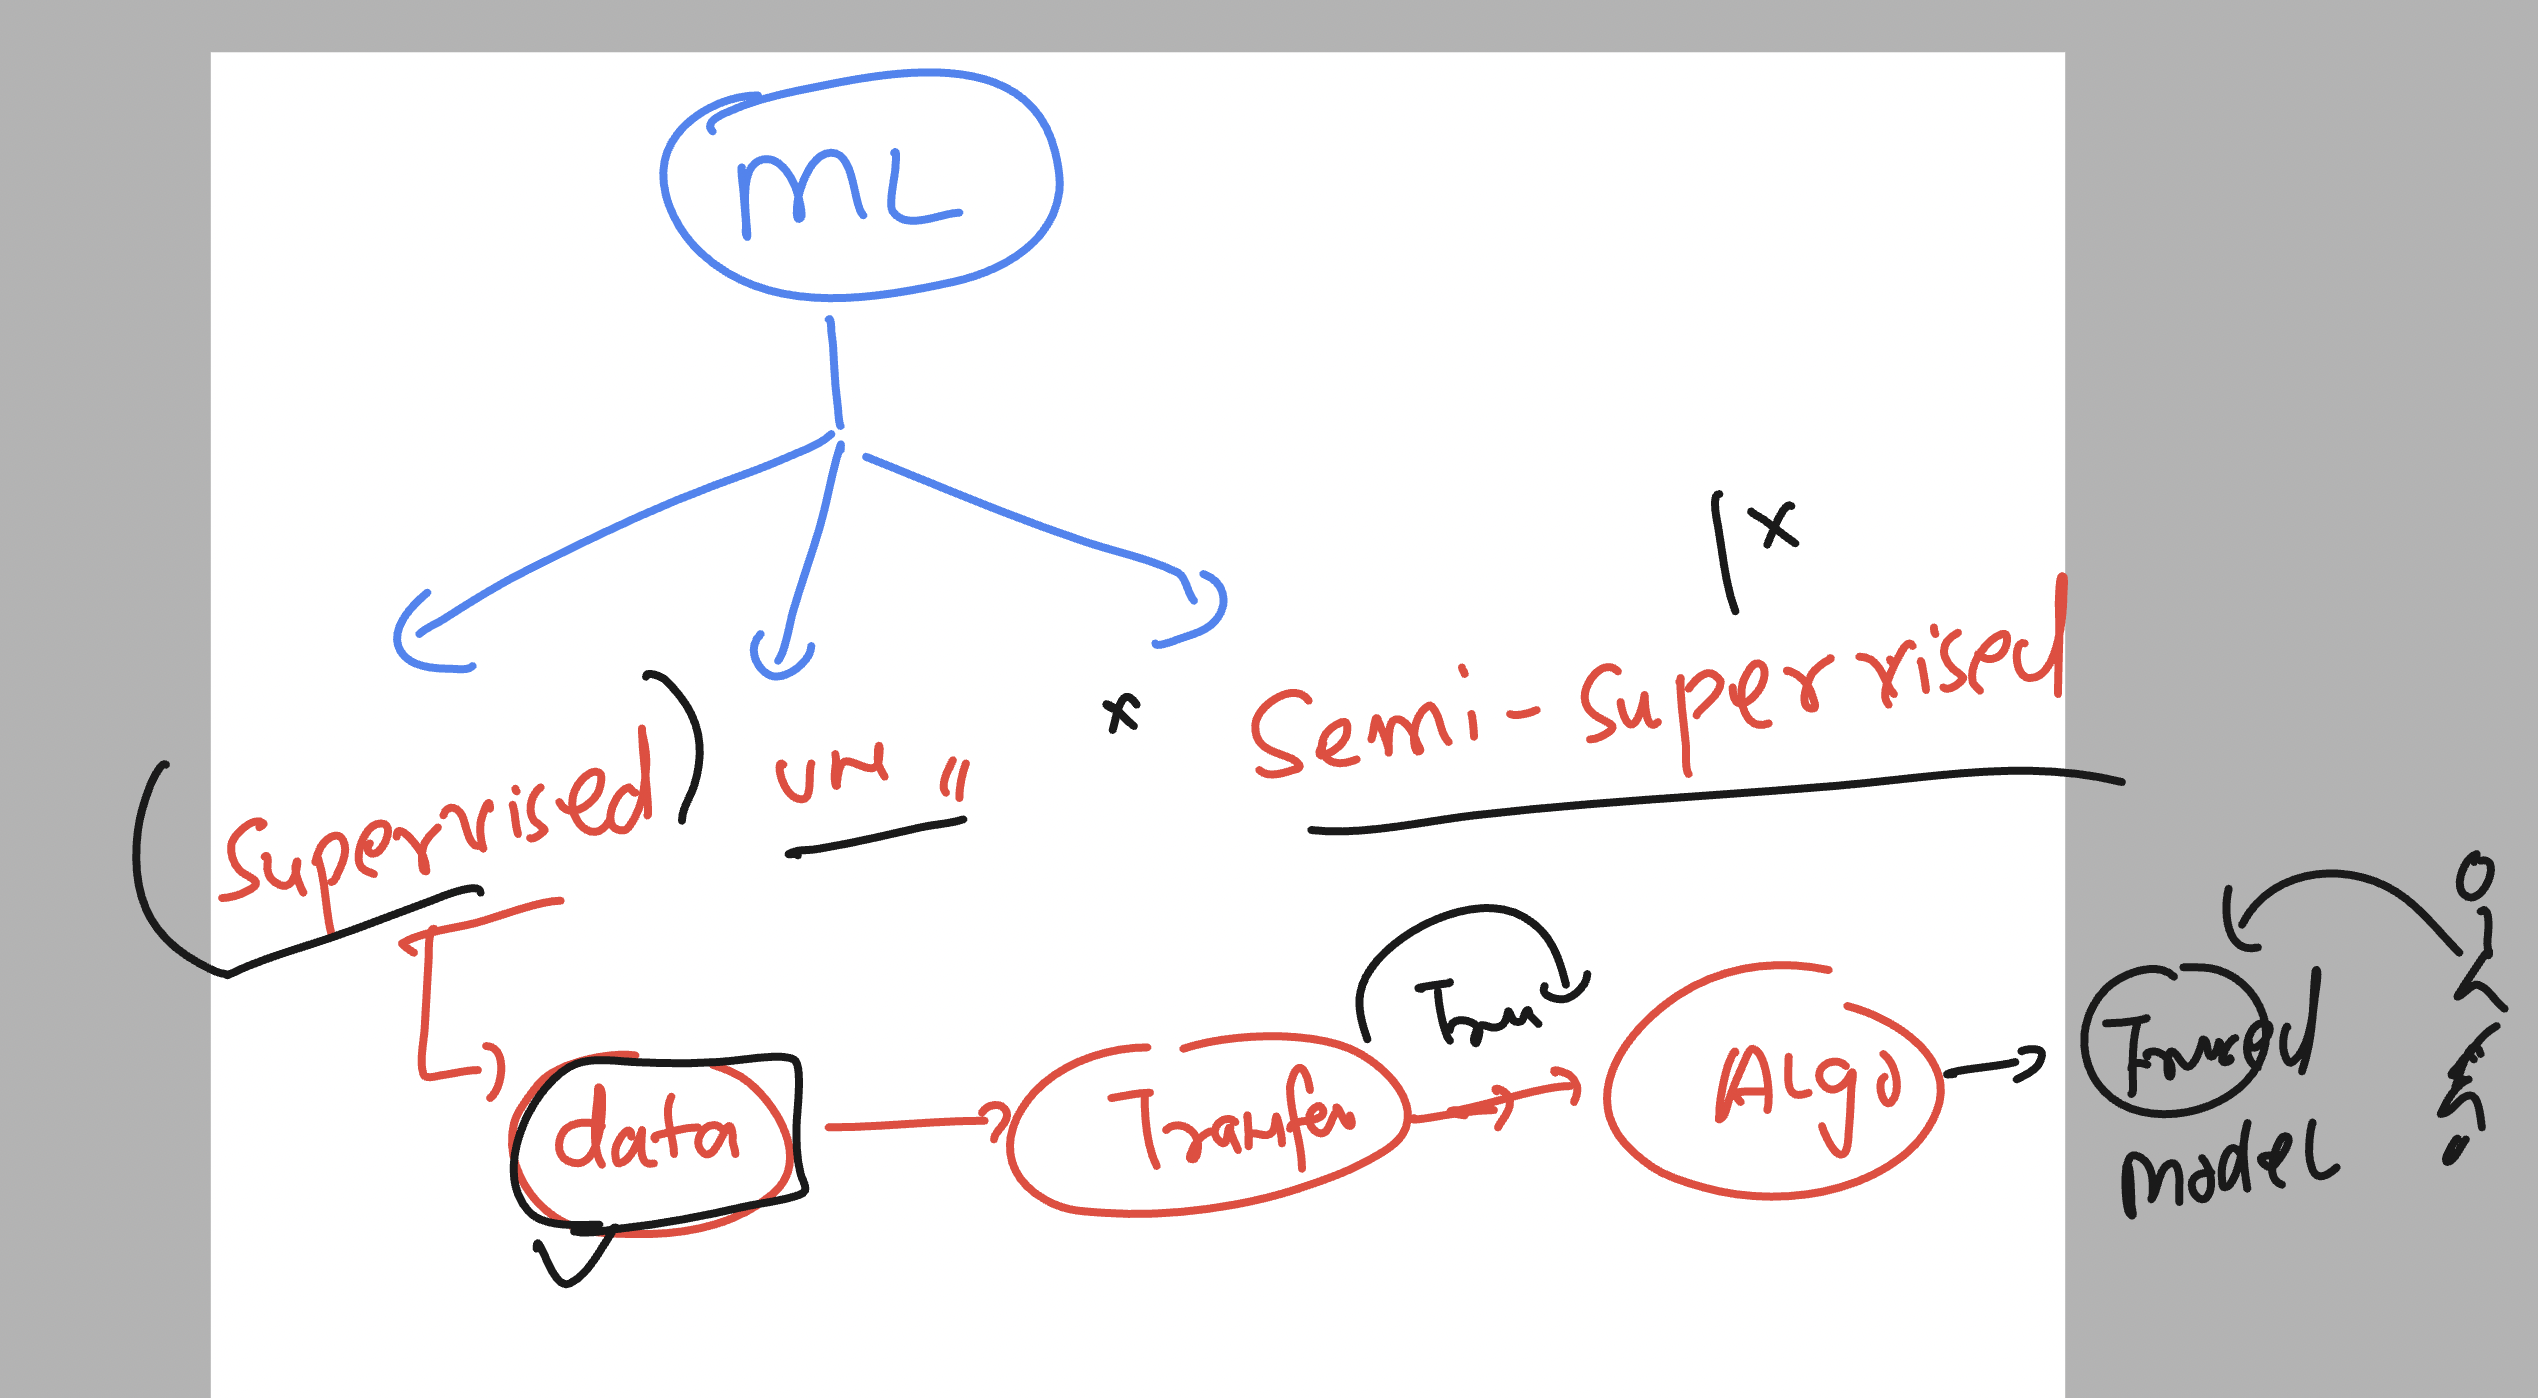 ML
x
Supervised
Un "
x
Semi-Supervised
data
Tranfer
Train
Algo
Trained
Model